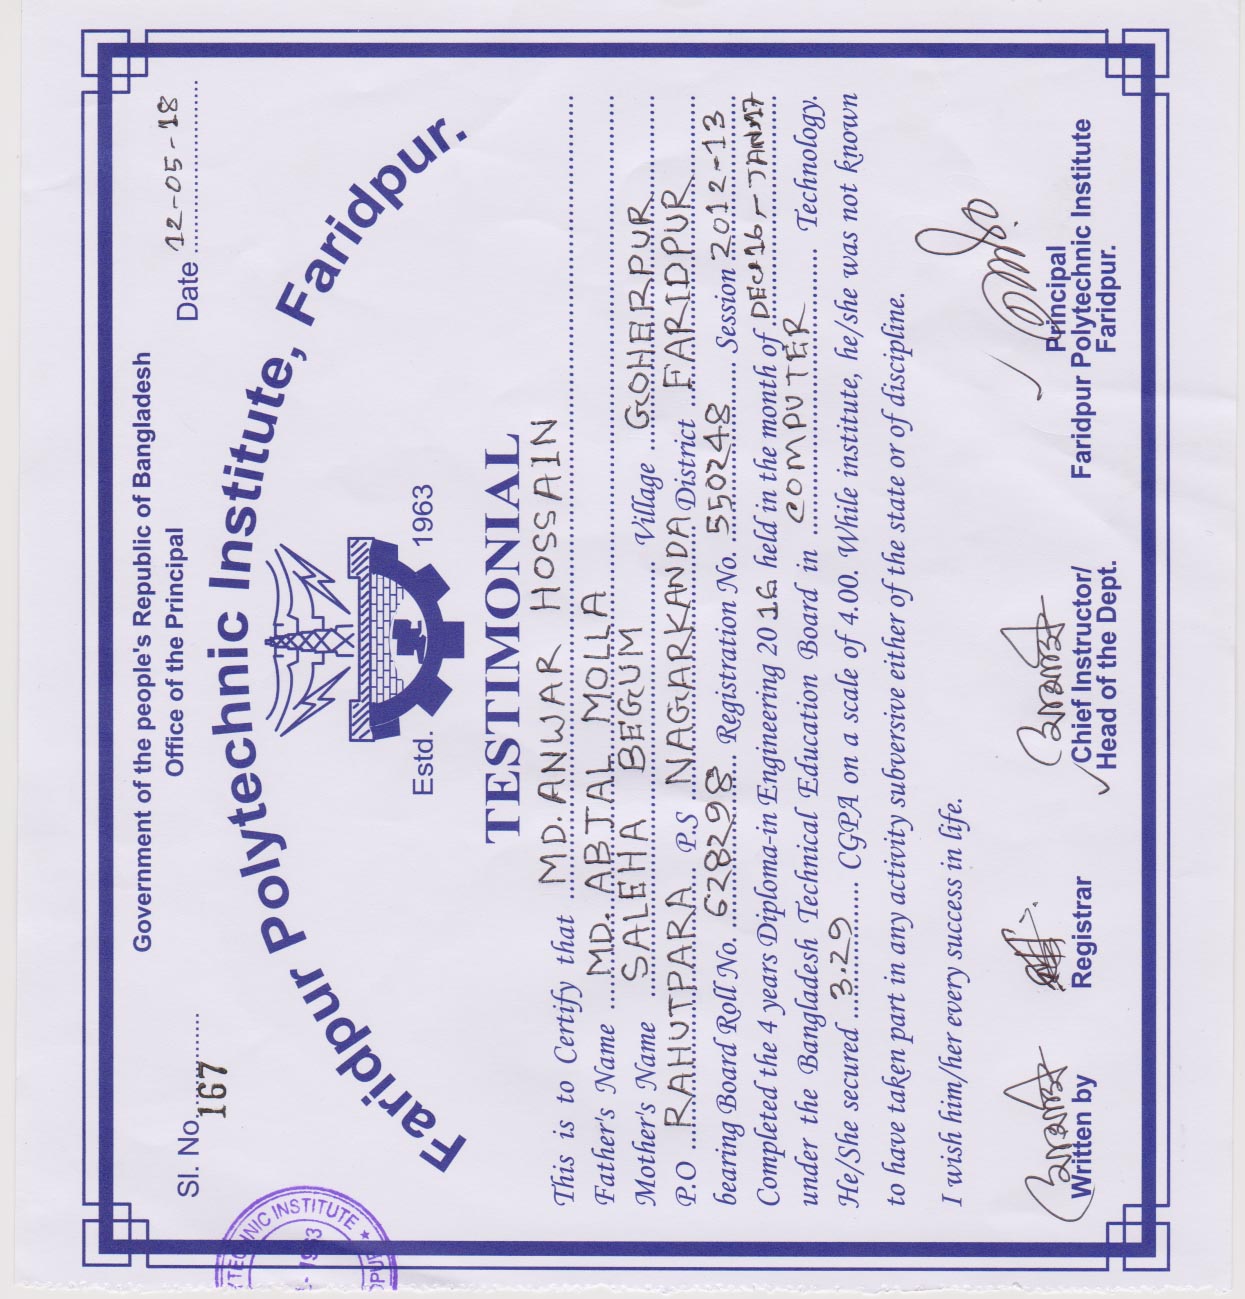 Government of the people's Republic of Bangladesh
Office of the Principal
Sl. No. 167
Date 12-05-18
Faridpur Polytechnic Institute, Faridpur.
Estd. 1963
TESTIMONIAL
This is to Certify that MD. ANWAR HOSSAIN
Father's Name MD. ABJAL MOLLA
Mother's Name SALEHA BEGUM Village GOHERPUR
P.O RAHUTPARA P.S NAGARKANDA District FARIDPUR
bearing Board Roll No. 628298 Registration No. 550248 Session 2012-13
Completed the 4 years Diploma-in Engineering 2016 held in the month of DEC 16 - JAN 17
under the Bangladesh Technical Education Board in COMPUTER Technology.
He/She secured 3.29 CGPA on a scale of 4.00. While institute, he/she was not known
to have taken part in any activity subversive either of the state or of discipline.
I wish him/her every success in life.
Written by
Registrar
Chief Instructor/
Head of the Dept.
Principal
Faridpur Polytechnic Institute
Faridpur.